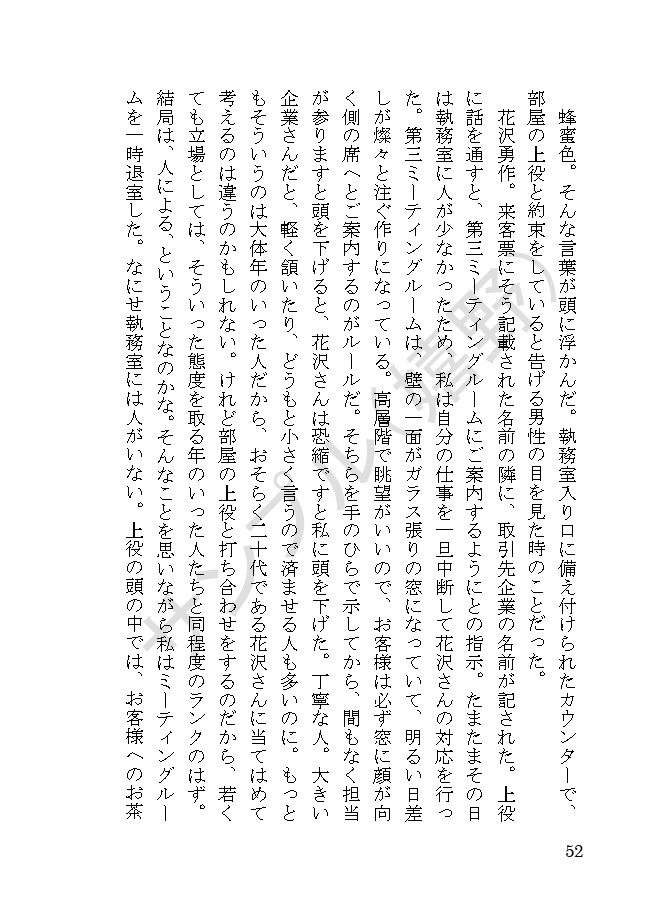 蜂蜜色。そんな言葉が頭に浮かんだ。執務室入り口に備え付けられたカウンターで、
部屋の上役と約束をしていると告げる男性の目を見た時のことだった。
花沢勇作。来客票にそう記載された名前の隣に、取引先企業の名前が記された。上役
に話を通すと、第三ミーティングルームにご案内するようにとの指示。たまたまその日
は執務室に人が少なかったため、私は自分の仕事を一旦中断して花沢さんの対応を行っ
た。第三ミーティングルームは、壁の一面がガラス張りの窓になっていて、明るい日差
しが燦々と注ぐ作りになっている。高層階で眺望がいいので、お客様は必ず窓に顔が向
く側の席へとご案内するのがルールだ。そちらを手のひらで示してから、間もなく担当
が参りますと頭を下げると、花沢さんは恐縮ですと私に頭を下げた。丁寧な人。大きい
企業さんだと、軽く頷いたり、どうもと小さく言うので済ませる人も多いのに。もっと
もそういうのは大体年のいった人だから、おそらく二十代である花沢さんに当てはめて
考えるのは違うのかもしれない。けれど部屋の上役と打ち合わせをするのだから、若く
ても立場としては、そういった態度を取る年のいった人たちと同程度のランクのはず。
結局は、人による、ということなのかな。そんなことを思いながら私はミーティングルー
ムを一時退室した。なにせ執務室には人がいない。上役の頭の中では、お客様へのお茶
52
サンプル(嬉野)